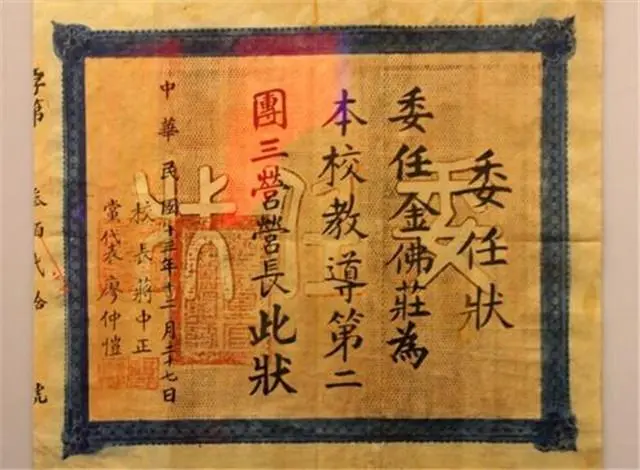 委任狀
委任金佛莊為
本校教導第二
團三營營長此狀
中華民國十三年十二月二十七日
校長蔣中正
黨代表廖仲愷
字第 叁佰弍拾 號
委任狀